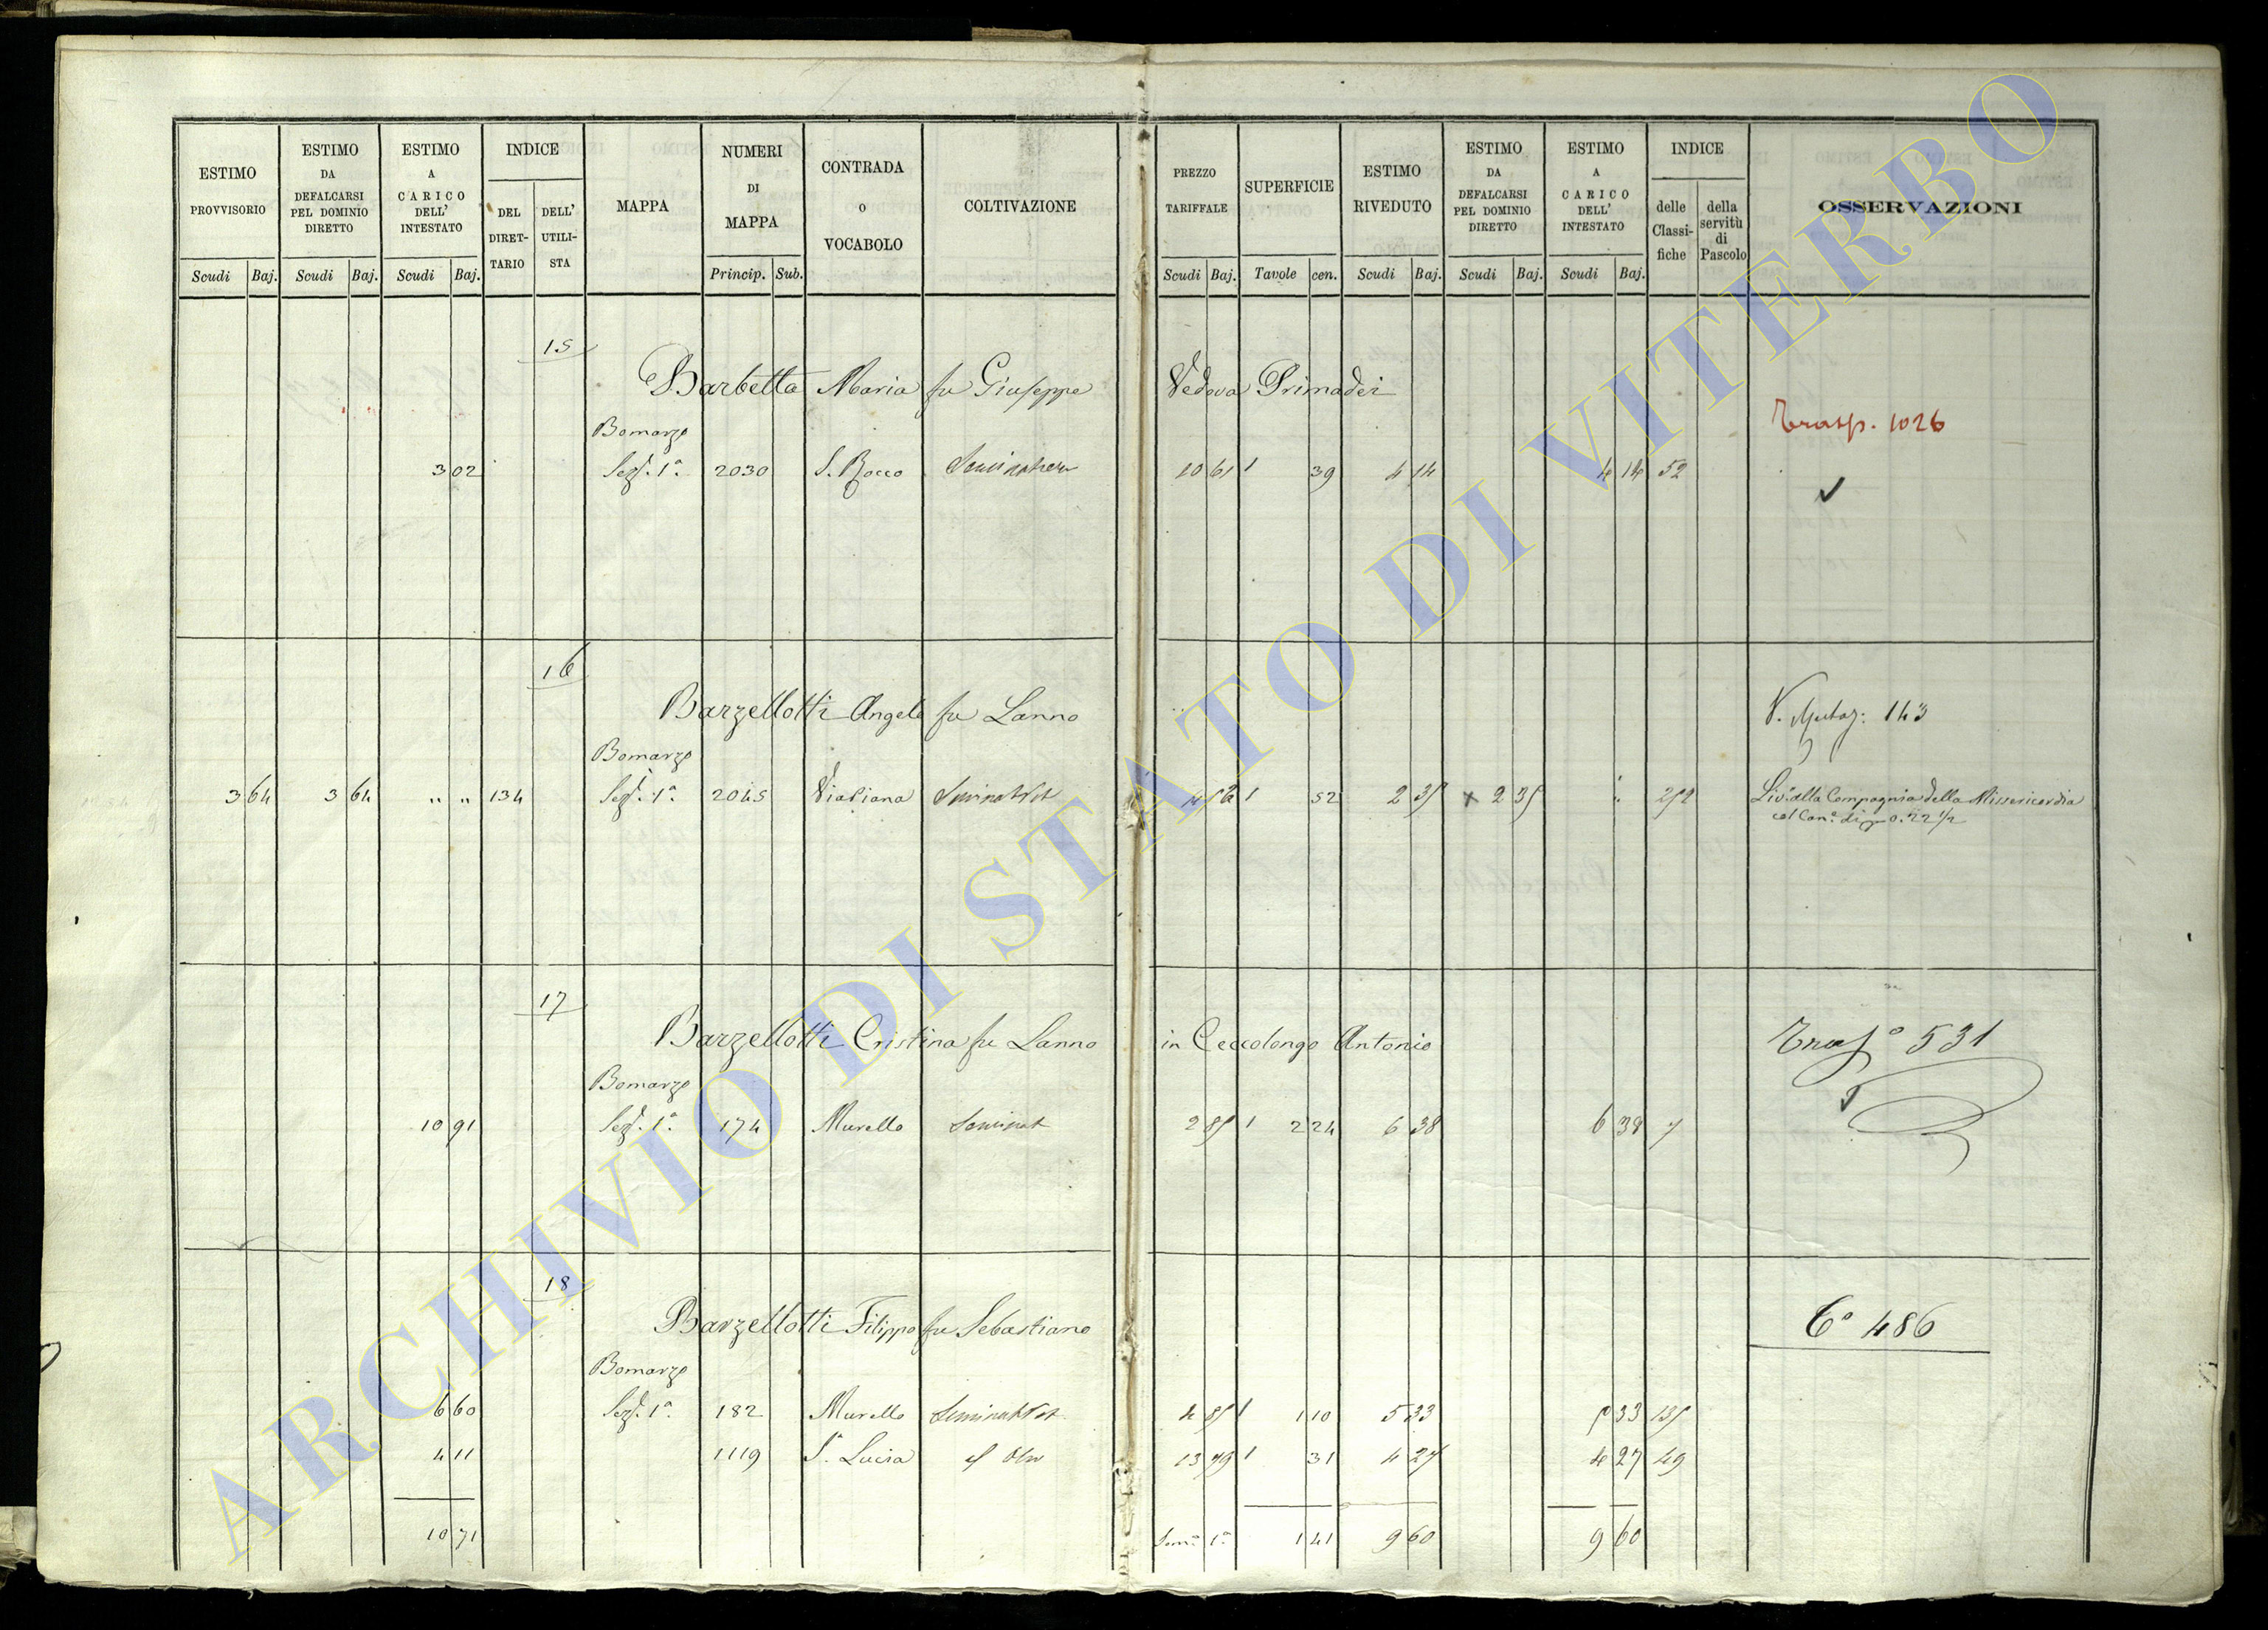 ESTIMO PROVVISORIO
ESTIMO DA DEFALCARSI PEL DOMINIO DIRETTO
ESTIMO A CARICO DELL' INTESTATO
INDICE
DEL DIRET-TARIO
DELL' UTILI-STA
MAPPA
NUMERI DI MAPPA
CONTRADA O VOCABOLO
COLTIVAZIONE
PREZZO TARIFFALE
SUPERFICIE
ESTIMO RIVEDUTO
ESTIMO DA DEFALCARSI PEL DOMINIO DIRETTO
ESTIMO A CARICO DELL' INTESTATO
INDICE
delle Classi-fiche
della servitù di Pascolo
OSSERVAZIONI
Scudi Baj. Scudi Baj. Scudi Baj. Princip. Sub. Scudi Baj. Tavole cen. Scudi Baj. Scudi Baj. Scudi Baj.
15
Barbetta Maria fu Giuseppe Vedova Primadei
Trasp. 1026
Bomarzo
3 02 Sez. 1ª 2030 S. Rocco 10 61 1 39 4 14 4 14 52
16
Barzellotti Angelo fu Lanno
V. Mutaz: 143
Bomarzo
3 64 3 64 " " 134 Sez. 1ª 2045 Viapiana 1 52 2 35 x 2 35
Liv. alla Compagnia della Missericordia
0.22 1/2
17
Barzellotti Cristina fu Lanno in Ceccolongo Antonio
531
Bomarzo
10 91 Sez. 1ª 174 Murello Seminat 2 85 1 2 24 6 38 6 38 7
18
Barzellotti Filippo fu Sebastiano
Tº 486
Bomarzo
6 60 Sez. 1ª 182 Murello 4 85 1 1 10 5 33 5 33 135
4 11 1119 S. Lucia 13 79 1 31 4 27 4 27 49
10 71 1 41 9 60 9 60
ARCHIVIO DI STATO DI VITERBO